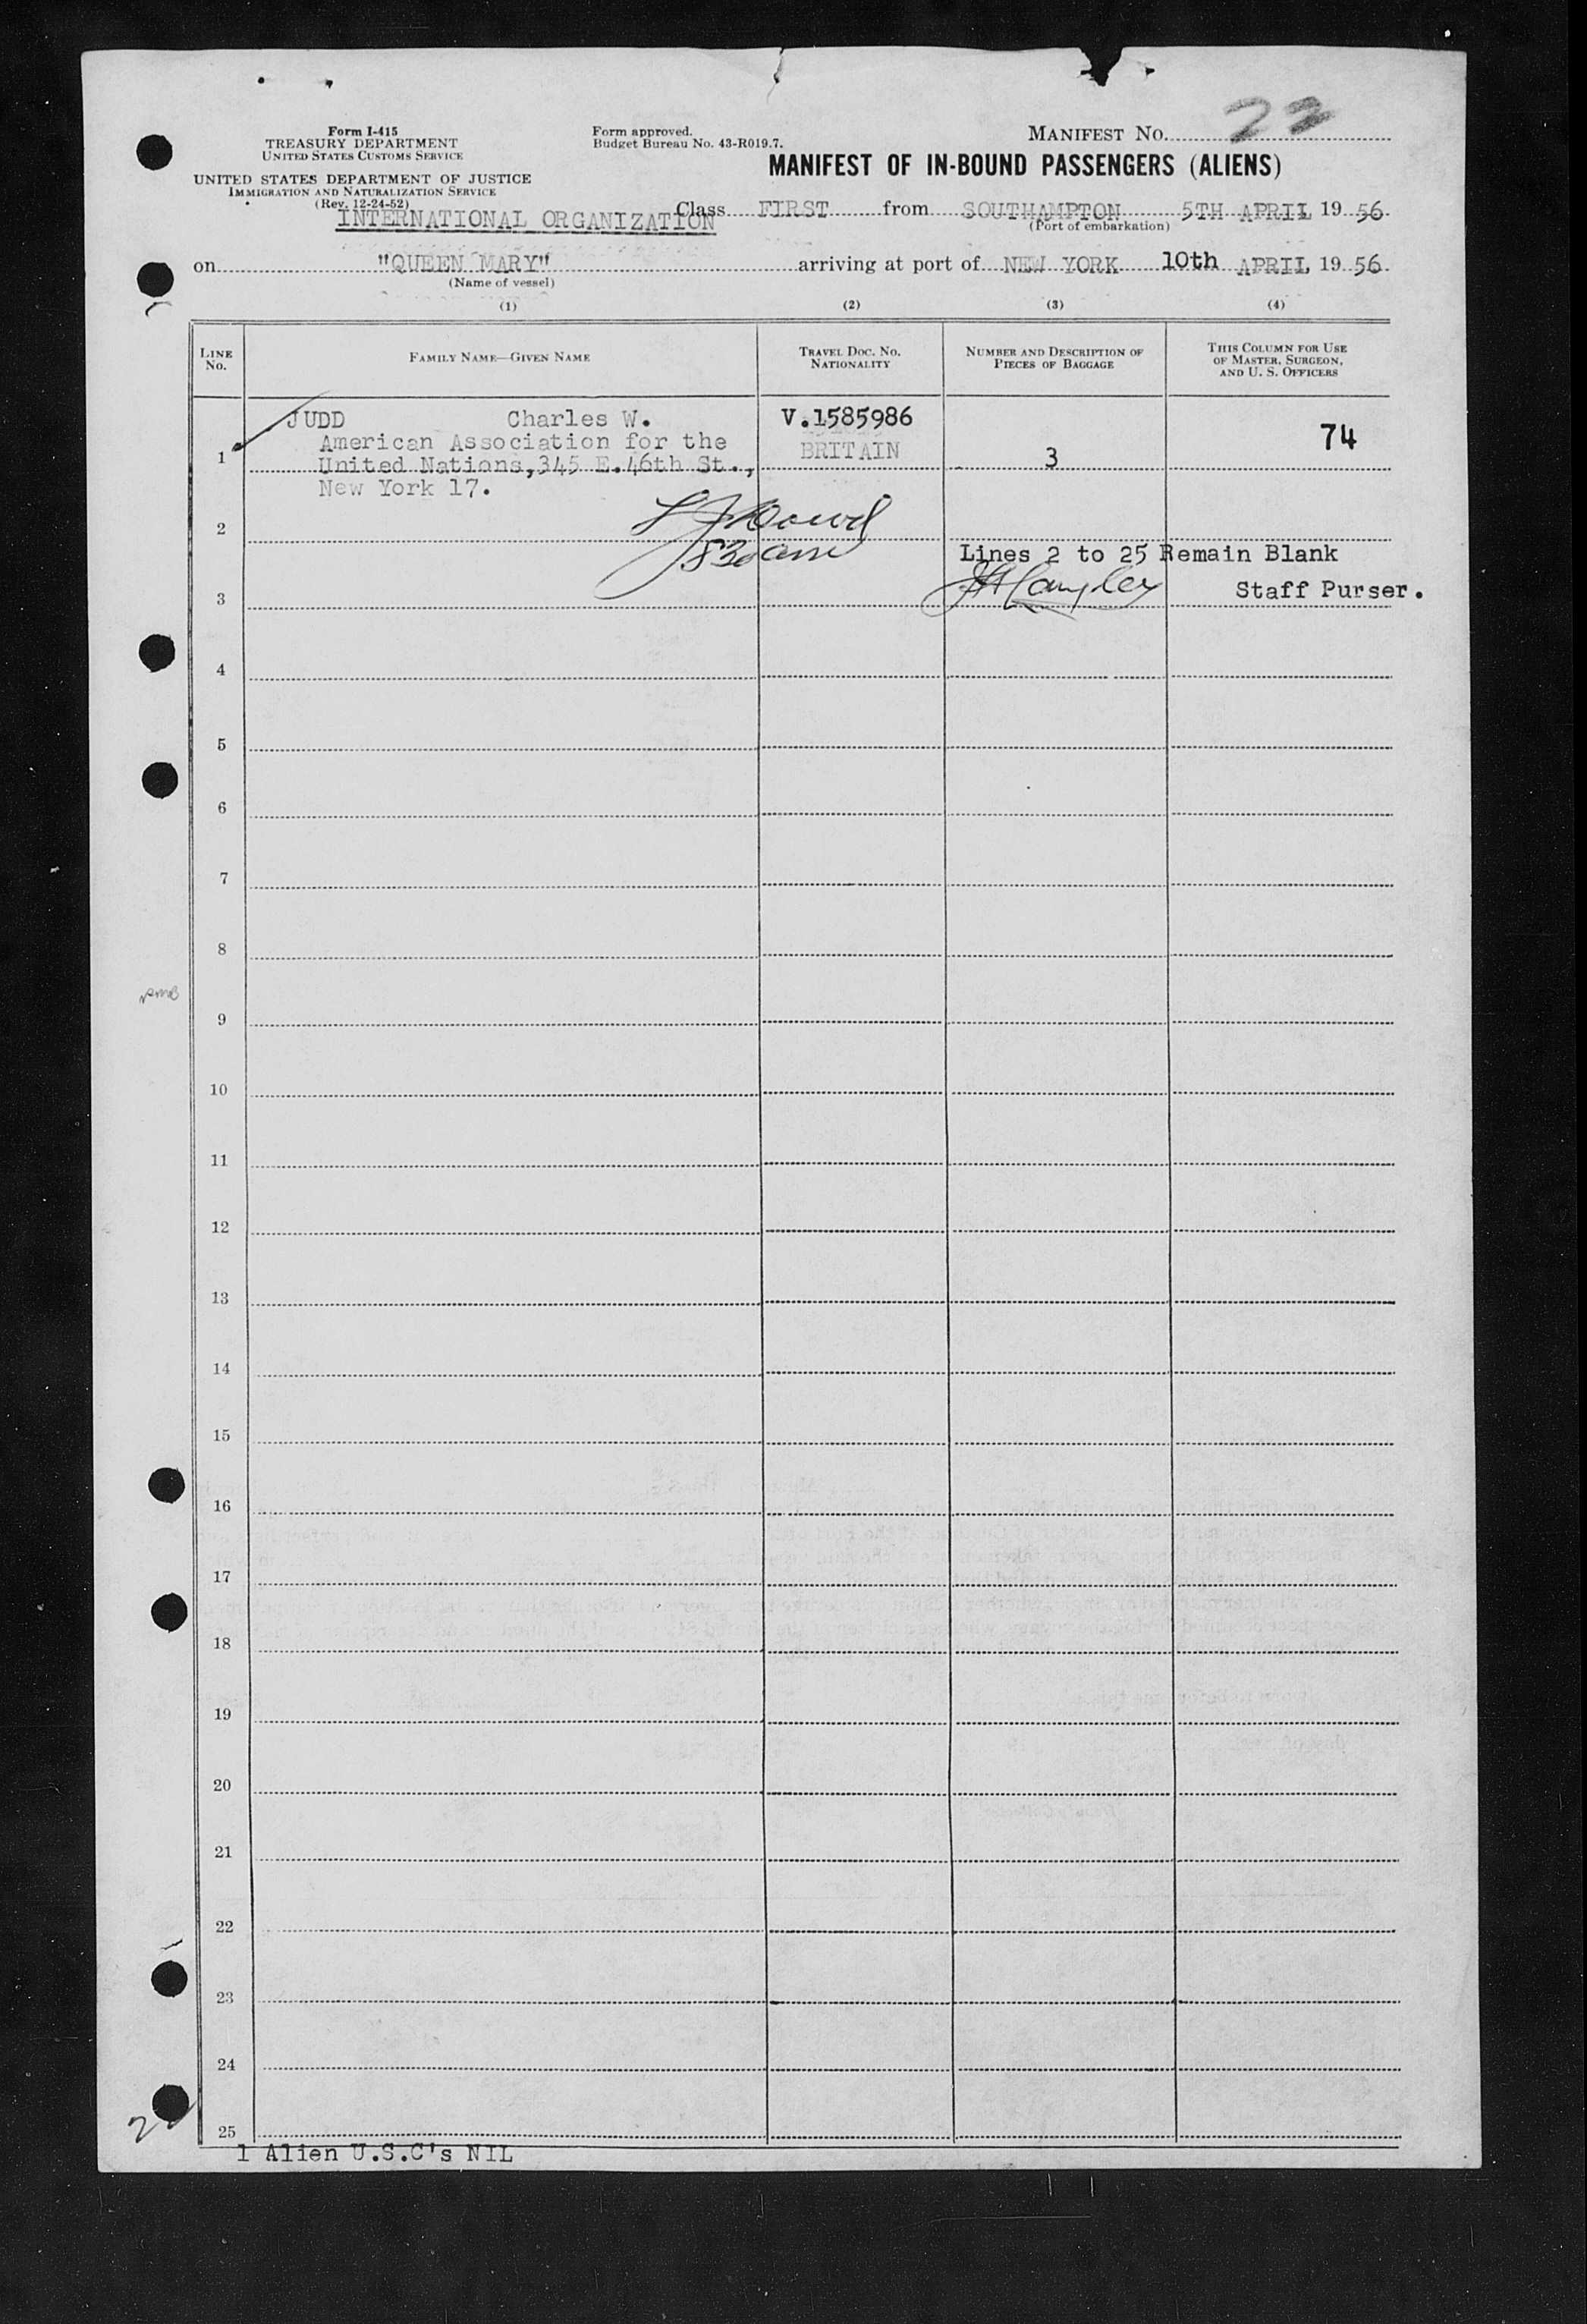 Form I-415
TREASURY DEPARTMENT
UNITED STATES CUSTOMS SERVICE
UNITED STATES DEPARTMENT OF JUSTICE
IMMIGRATION AND NATURALIZATION SERVICE
(Rev. 12-24-52)
Form approved.
Budget Bureau No. 43-R019.7.
MANIFEST No. 22
MANIFEST OF IN-BOUND PASSENGERS (ALIENS)
INTERNATIONAL ORGANIZATION Class FIRST from SOUTHAMPTON 5TH APRIL 19 56
(Port of embarkation)
on "QUEEN MARY" arriving at port of NEW YORK 10th APRIL, 19 56
(Name of vessel)
(1) (2) (3) (4)
LINE No. FAMILY NAME—GIVEN NAME TRAVEL DOC. NO. NATIONALITY NUMBER AND DESCRIPTION OF PIECES OF BAGGAGE THIS COLUMN FOR USE OF MASTER, SURGEON, AND U. S. OFFICERS
JUDD Charles W. V.1585986 74
American Association for the BRITAIN
1 United Nations,345 E.46th St., 3
New York 17.
2
830 am Lines 2 to 25 Remain Blank
3 Staff Purser.
4
5
6
7
8
9
10
11
12
13
14
15
16
17
18
19
20
21
22
23
24
25
1 Alien U.S.C's NIL